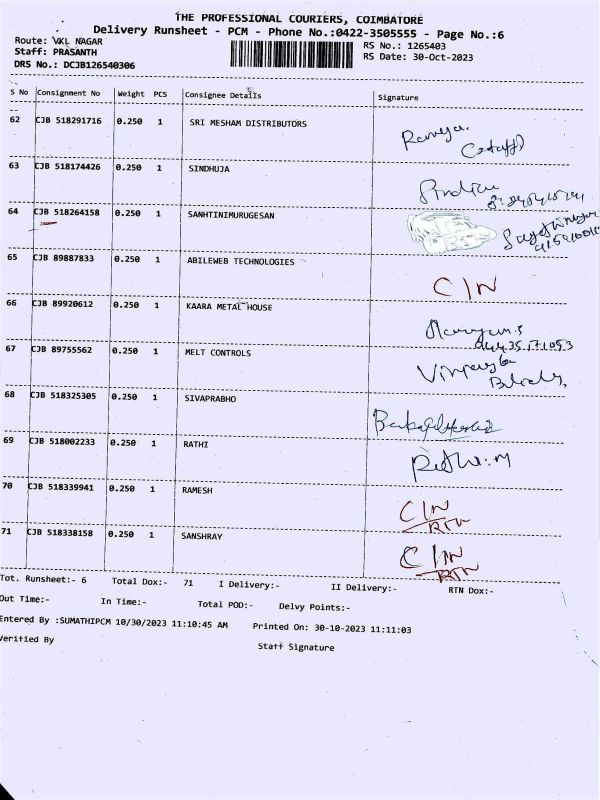 THE PROFESSIONAL COURIERS, COIMBATORE
Delivery Runsheet - PCM - Phone No.:0422-3505555 - Page No.:6
Route: VKL NAGAR
RS No.: 1265403
Staff: PRASANTH
RS Date: 30-Oct-2023
DRS No.: DCJB126540306
S No Consignment No Weight PCS Consignee Details Signature
62 CJB 518291716 0.250 1 SRI MESHAM DISTRIBUTORS Ramya.
(staff)
63 CJB 518174426 0.250 1 SINDHUJA
64 CJB 518264158 0.250 1 SANHTINIMURUGESAN
65 CJB 89887833 0.250 1 ABILEWEB TECHNOLOGIES C/N
66 CJB 89920612 0.250 1 KAARA METAL HOUSE
67 CJB 89755562 0.250 1 MELT CONTROLS
68 CJB 518325305 0.250 1 SIVAPRABHO
69 CJB 518002233 0.250 1 RATHI
70 CJB 518339941 0.250 1 RAMESH C/N
RTN
71 CJB 518338158 0.250 1 SANSHRAY C/N
RTN
Tot. Runsheet:- 6 Total Dox:- 71 I Delivery:- II Delivery:- RTN Dox:-
Out Time:- In Time:- Total POD:- Delvy Points:-
Entered By :SUMATHIPCM 10/30/2023 11:10:45 AM Printed On: 30-10-2023 11:11:03
Verified By
Staff Signature